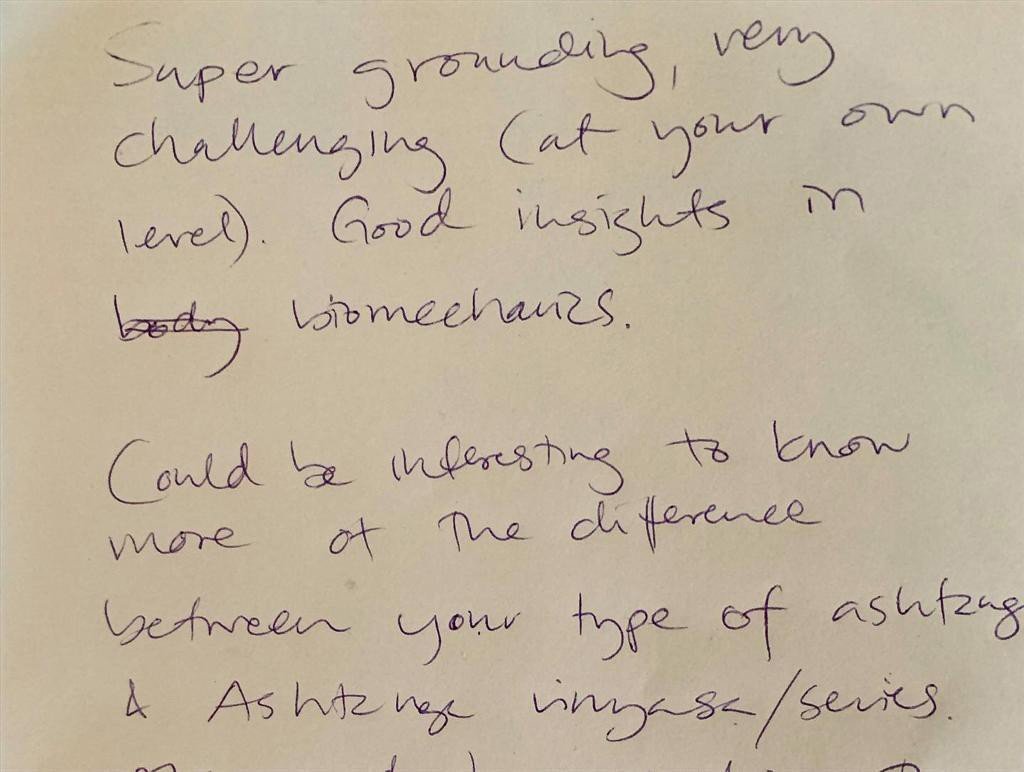 Super grounding, very
challenging (at your own
level). Good insights in
body biomechanics.
Could be interesting to know
more of the difference
between your type of ashtang
& Ashtanga vinyasa/series.